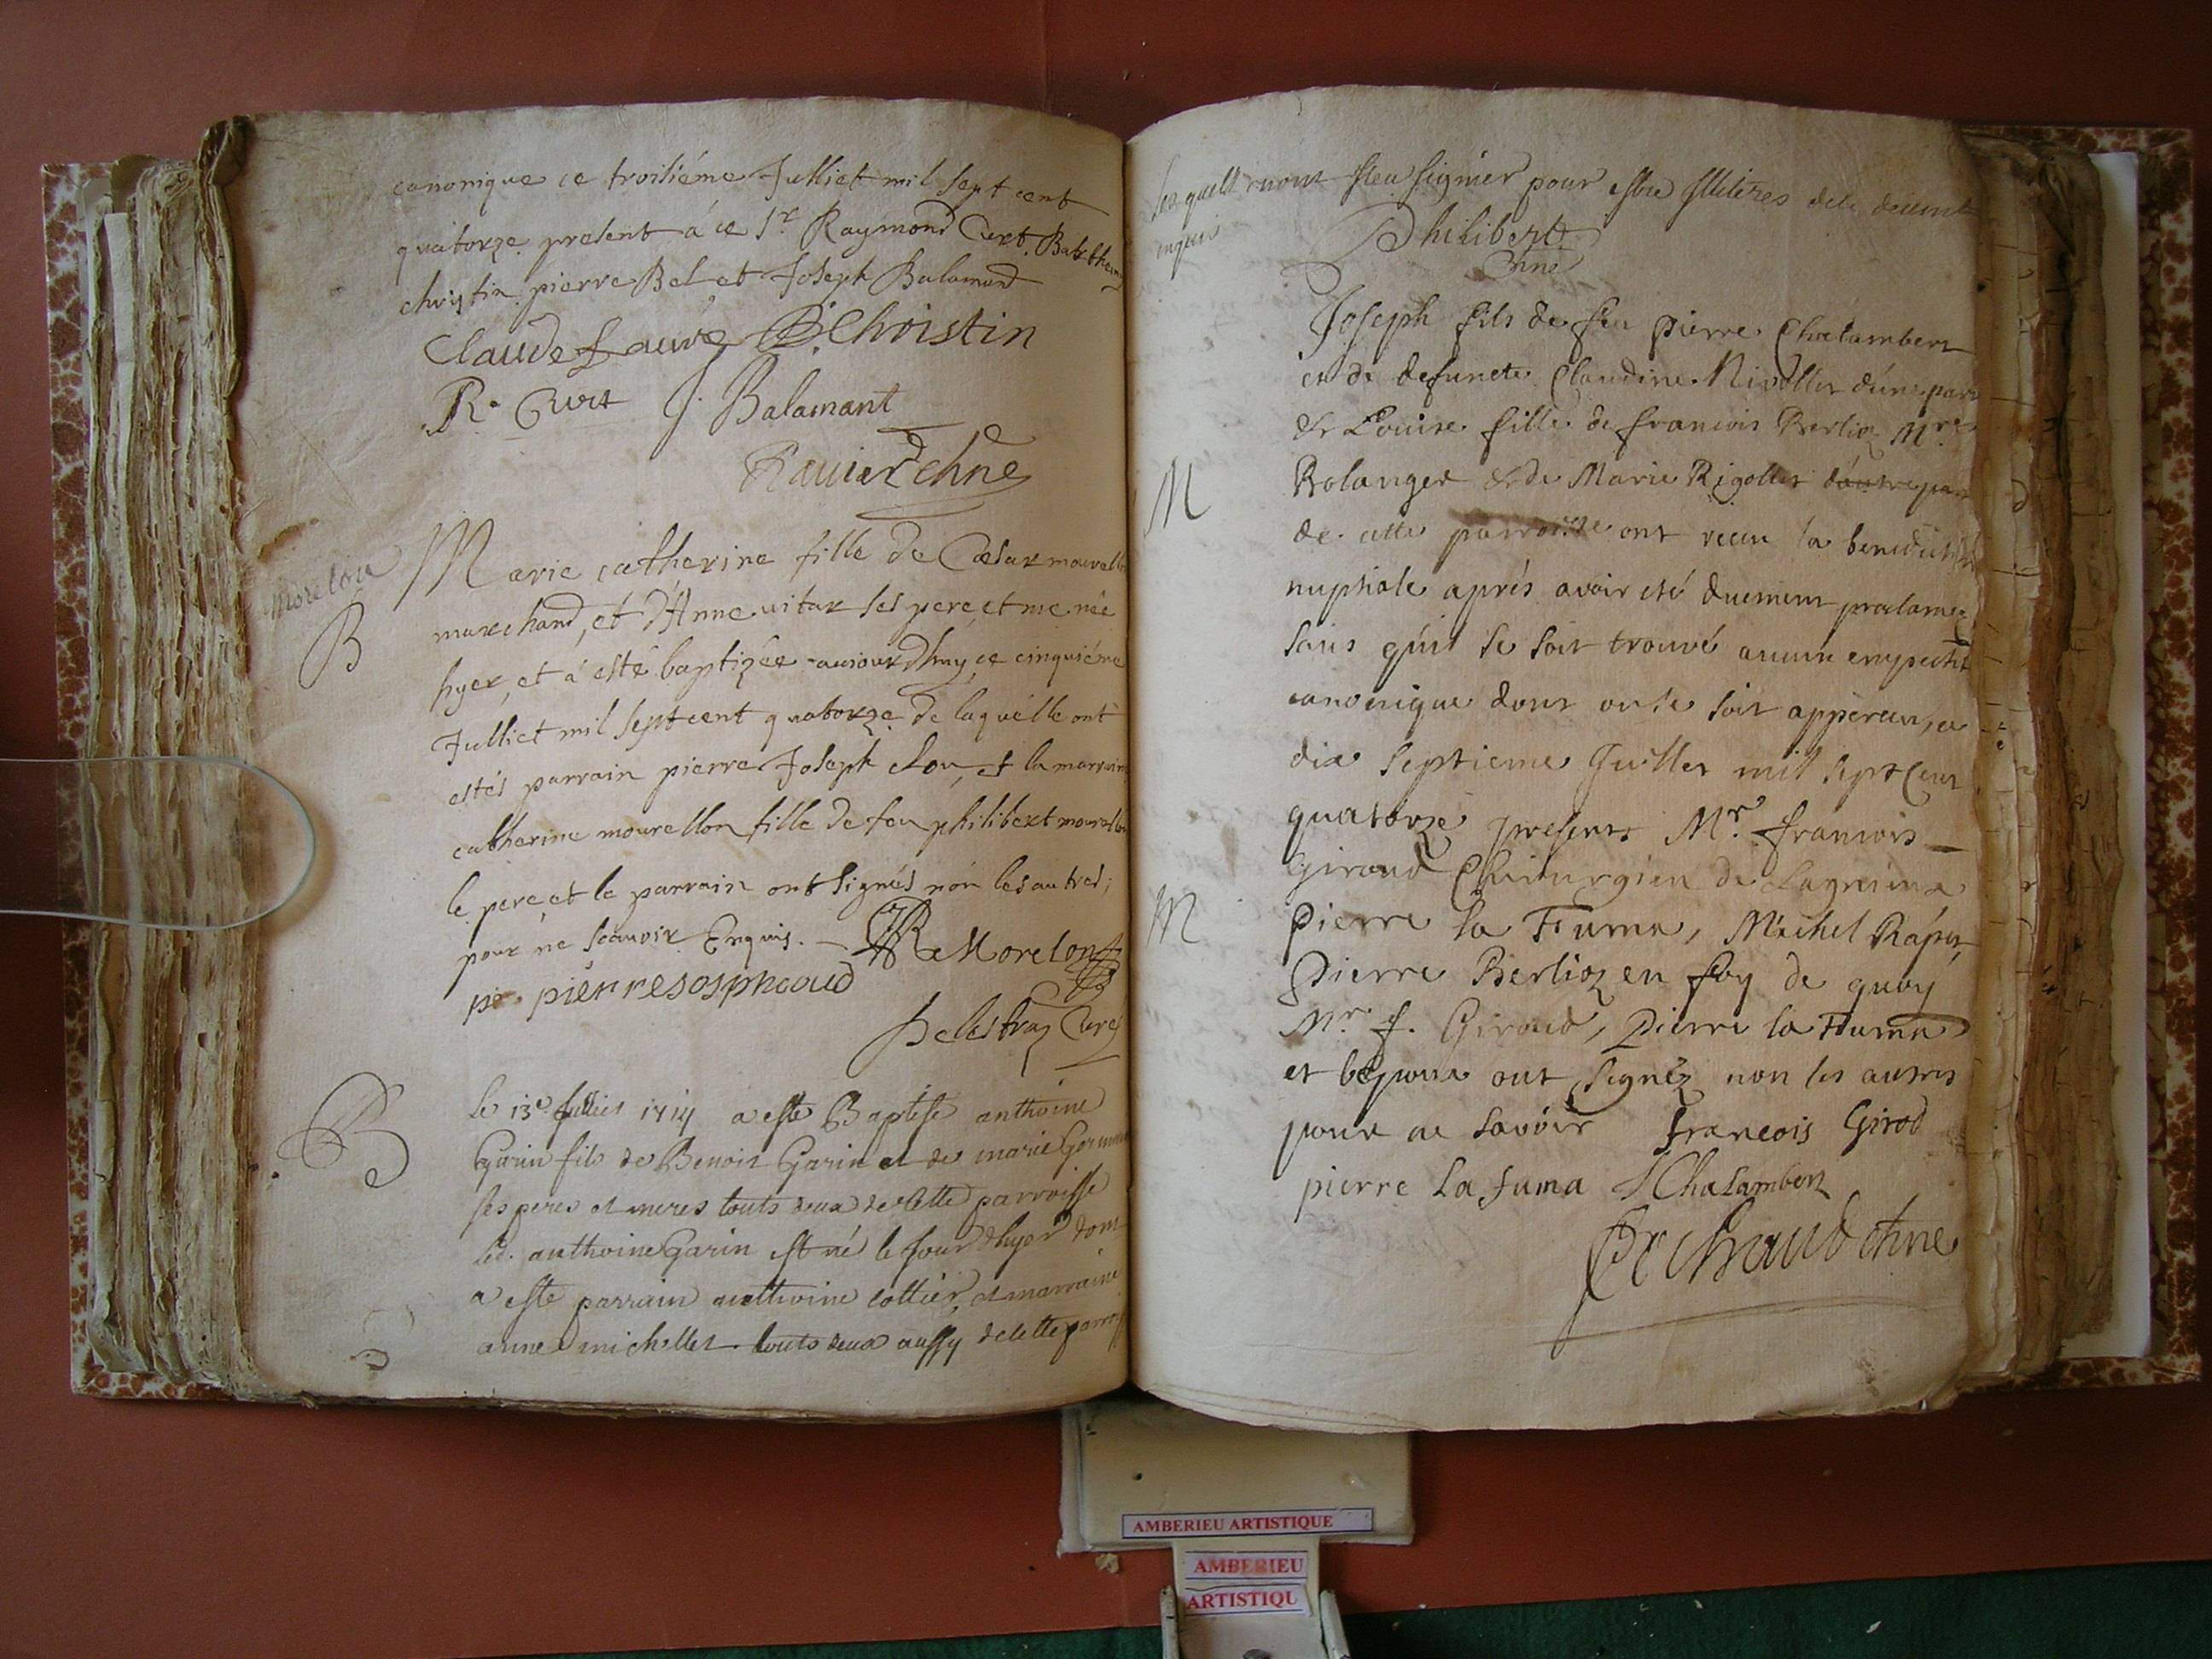 canonique ce troisiéme Julliet mil sept cent
quatorze present á ce Sr Raymond Curt, Balthe
christin pierre Bel et Joseph Balamand
Claude faure B. Christin
R. Curt J. Balamant
Rauier chne
morelon
Marie catherine fille de Cæsar mourell
B
marchand, et d'Anne uitar ses pere et me née
hyer, et á esté baptizée aujourdhuy ce cinquiéme
Julliet mil sept cent quatorze de laquélle ont
estés parrain pierre Joseph clou, et la marrain
catherine mourellon fille de feu philibert mourellon
le pere, et le parrain ont signés non les autres,
pour ne scauoir Enquis. Morelon
pierresosph coud
Delestraz Curé
B
le 13e Julliet 1714 a esté Baptise anthoine
Garin fils de Benoit Garin et de marie Germ
ses peres et meres touts deux de cette parroisse
led. anthoine Garin est né le Jour dhyer dont
a esté parrain anthoine cottier, et marraine
anne michellet touts deux aussy de cette parroi
lesquells nont sceu signer pour estre illiteres
enquis
Philibert
chne
Joseph fils de feu Pierre Chalambert
et de defuncte Claudine Nivollet d'une part
& Louise fille de francois Berlioz Mre
M
Bolanger & de Marie Rigollet d'autre par
de cette parroisse ont receu la benediction
nuptiale aprés avoir esté duement proclamez
sans qu'il se soit trouvé aucun empecht
canonique dont on se soit apperceu, ce
dix septieme Juillet mil sept cent
quatorze presents Mr. francois
Giroud Chirurgien de Lagnieux
M
Pierre la Fuma, Michel
Pierre Berlioz en foy de quoy
Mr. f. Giroud, Pierre la Fuma
et l'epoux ont signéz non les autres
pour ne savoir francois Girod
pierre la fuma J Chalambert
chne
AMBERIEU ARTISTIQUE
AMBERIEU
ARTISTIQU